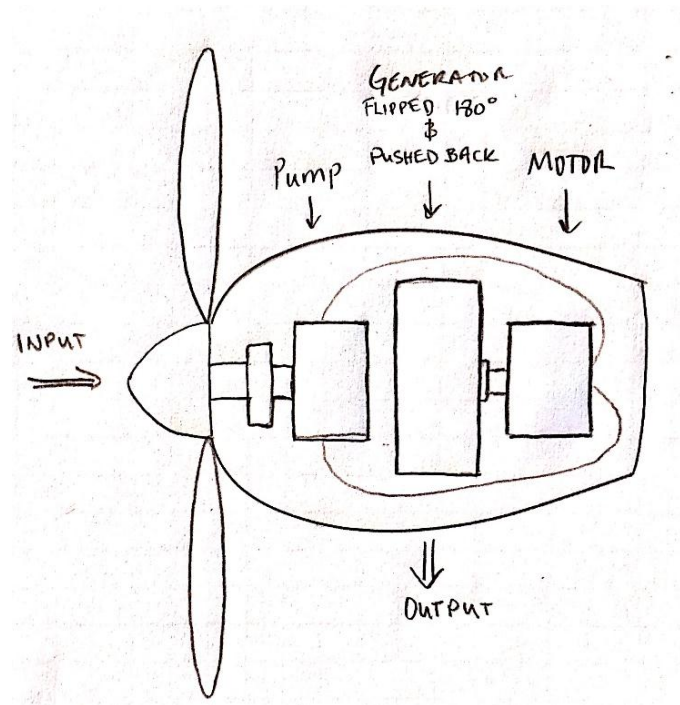 GENERATOR
FLIPPED 180°
&
PUSHED BACK
Pump
MOTOR
INPUT
OUTPUT